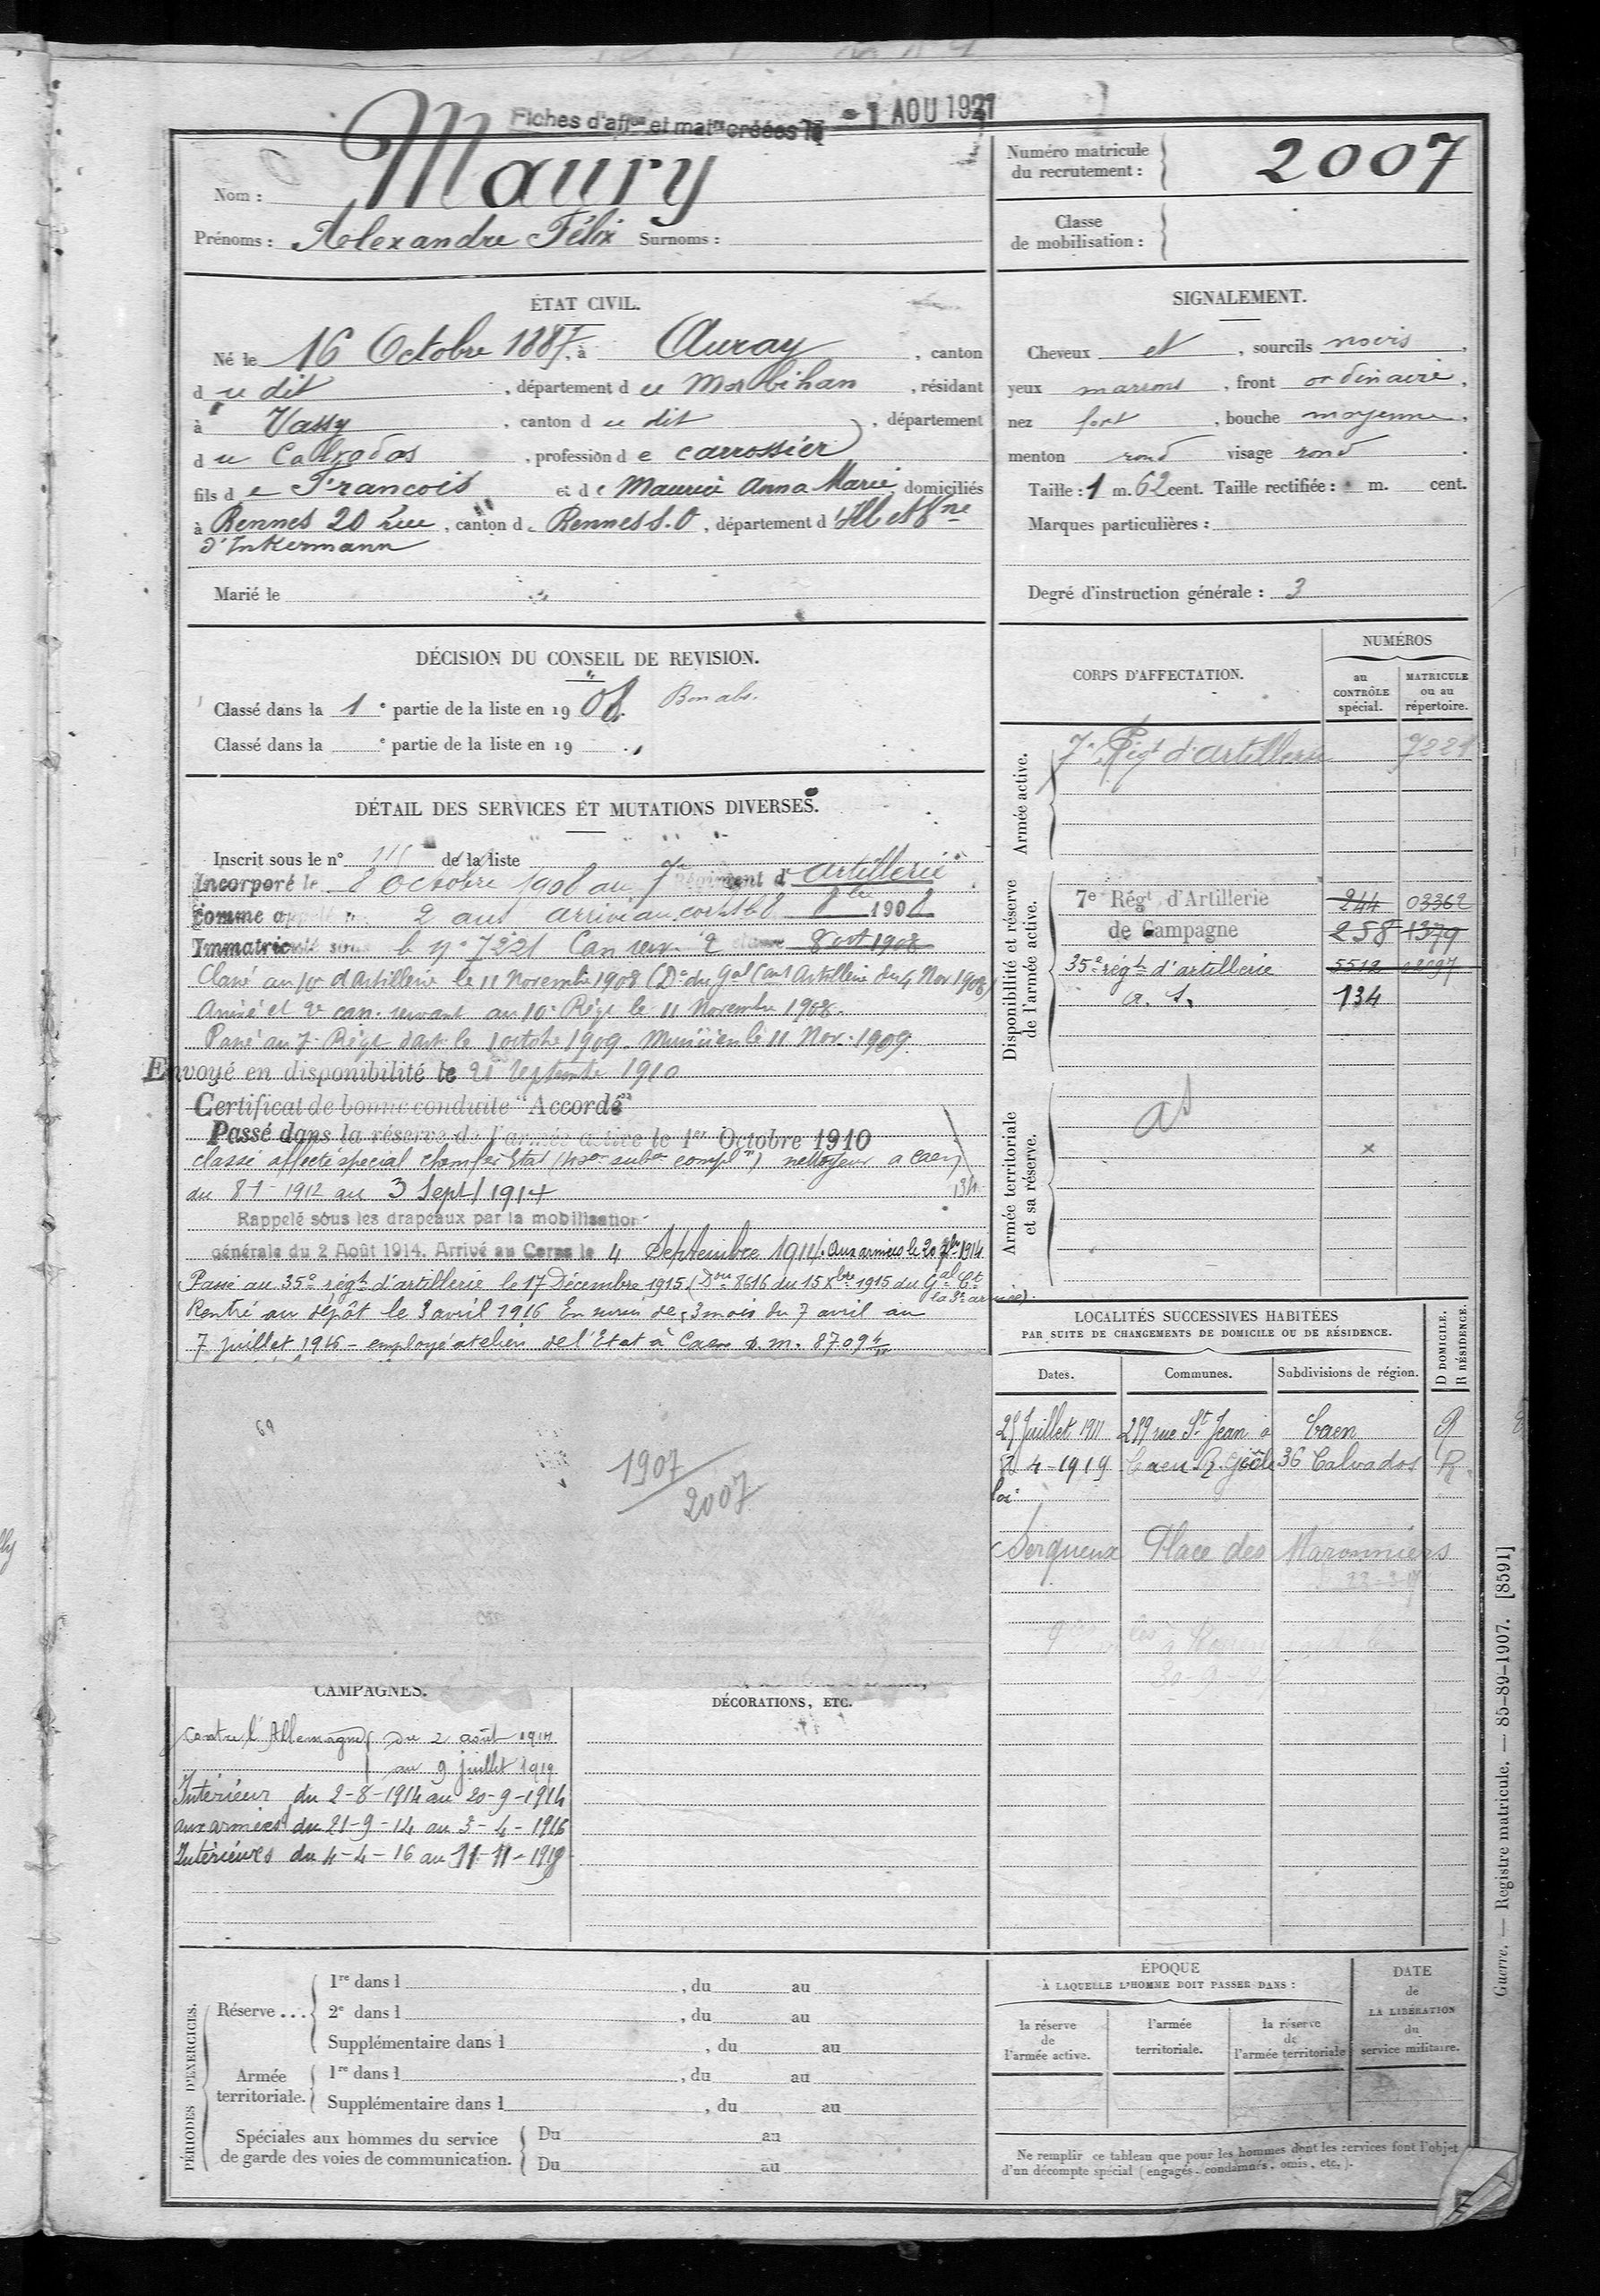 Fiches d'aff^on et mat^le créées le - 1 AOU 1927
Nom : Maury
Prénoms : Alexandre Félix Surnoms :
Numéro matricule du recrutement : 2007
Classe de mobilisation :
ÉTAT CIVIL.
Né le 16 Octobre 1887, à Auray, canton
du dit, département du Morbihan, résidant
à Vassy, canton du dit, département
du Calvados, profession de carrossier
fils de Francois et de Maurice Anna Marie, domiciliés
à Rennes 20 rue, canton de Rennes S.O, département d'Ille et V^ne
d'Inkermann
Marié le
SIGNALEMENT.
Cheveux et, sourcils noirs,
yeux marrons, front ordinaire,
nez fort, bouche moyenne,
menton rond visage rond.
Taille : 1 m. 62 cent. Taille rectifiée : m. cent.
Marques particulières :
Degré d'instruction générale : 3
DÉCISION DU CONSEIL DE REVISION.
Classé dans la 1^e partie de la liste en 1908. Bon abs.
Classé dans la ^e partie de la liste en 19
DÉTAIL DES SERVICES ET MUTATIONS DIVERSES.
Inscrit sous le n° de la liste
Incorporé le 8 Octobre 1908 au 7^e Régiment d'Artillerie
comme appelé 2 ans arrivé au corps le 8 8^bre 1908
Immatriculé sous le n° 7221 Can serv. 2 classe 8 oct 1908
Classé au 10^e d'Artillerie le 11 Novembre 1908 (D^on du G^al C^ant Artillerie du 4 Nov 1908)
Arrivé et 2^e can. servant au 10^e Rég^t le 11 Novembre 1908.
Passé au 7^e Rég^t d'art. le 1 octobre 1909. Musicien le 11 Nov. 1909.
Envoyé en disponibilité le 25 Septembre 1910
Certificat de bonne conduite "Accordé"
Passé dans la réserve de l'armée active le 1^er Octobre 1910
classé affecté spécial chem fer Etat nettoyeur a Caen
du 8-1-1912 au 3 Sept 1914 134
Rappelé sous les drapeaux par la mobilisation
générale du 2 Août 1914. Arrivé au Corps le 4 Septembre 1914. Aux armées le 20 7^bre 1914
Passé au 35^e rég^t d'artillerie le 17 Décembre 1915 (D^on 8616 du 15 X^bre 1915 du G^al C^t
la 3^e armée).
Rentré au dépôt le 3 avril 1916 En sursis de 3 mois du 7 avril au
7 juillet 1916 - employé atelier de l'Etat à Caen D.M. 8709
69
1907
2007
CORPS D'AFFECTATION.
NUMÉROS
au CONTRÔLE spécial.
MATRICULE ou au répertoire.
Armée active.
7^e Rég^t d'Artillerie 7221
Disponibilité et réserve de l'armée active.
7^e Rég^t d'Artillerie 244 03362
de Campagne 258 1379
35^e rég^t d'artillerie 5512
A. S. 134
Armée territoriale et sa réserve.
AS
LOCALITÉS SUCCESSIVES HABITÉES
PAR SUITE DE CHANGEMENTS DE DOMICILE OU DE RÉSIDENCE.
Dates. Communes. Subdivisions de région. D DOMICILE. R RÉSIDENCE.
25 Juillet 1911 259 rue S^t Jean à Caen R
4-1919 Caen R. Geôle 36 Calvados R.
Serqueux Place des Maronniers
CAMPAGNES.
DÉCORATIONS, ETC.
Contre l'Allemagne du 2 août 1914
au 9 juillet 1919
Intérieur du 2-8-1914 au 20-9-1914
aux armées du 21-9-14 au 3-4-1916
Intérieures du 4-4-16 au 11-11-1918
PÉRIODES D'EXERCICES.
Réserve ... 1^re dans l, du au
2^e dans l, du au
Supplémentaire dans l, du au
Armée territoriale. 1^re dans l, du au
Supplémentaire dans l, du au
Spéciales aux hommes du service de garde des voies de communication. Du au
Du au
ÉPOQUE
À LAQUELLE L'HOMME DOIT PASSER DANS :
la réserve de l'armée active.
l'armée territoriale.
la réserve de l'armée territoriale
DATE de LA LIBÉRATION du service militaire.
Ne remplir ce tableau que pour les hommes dont les services font l'objet
d'un décompte spécial (engagés, condamnés, omis, etc.).
Guerre. — Registre matricule. — 85-89-1907. [8591]